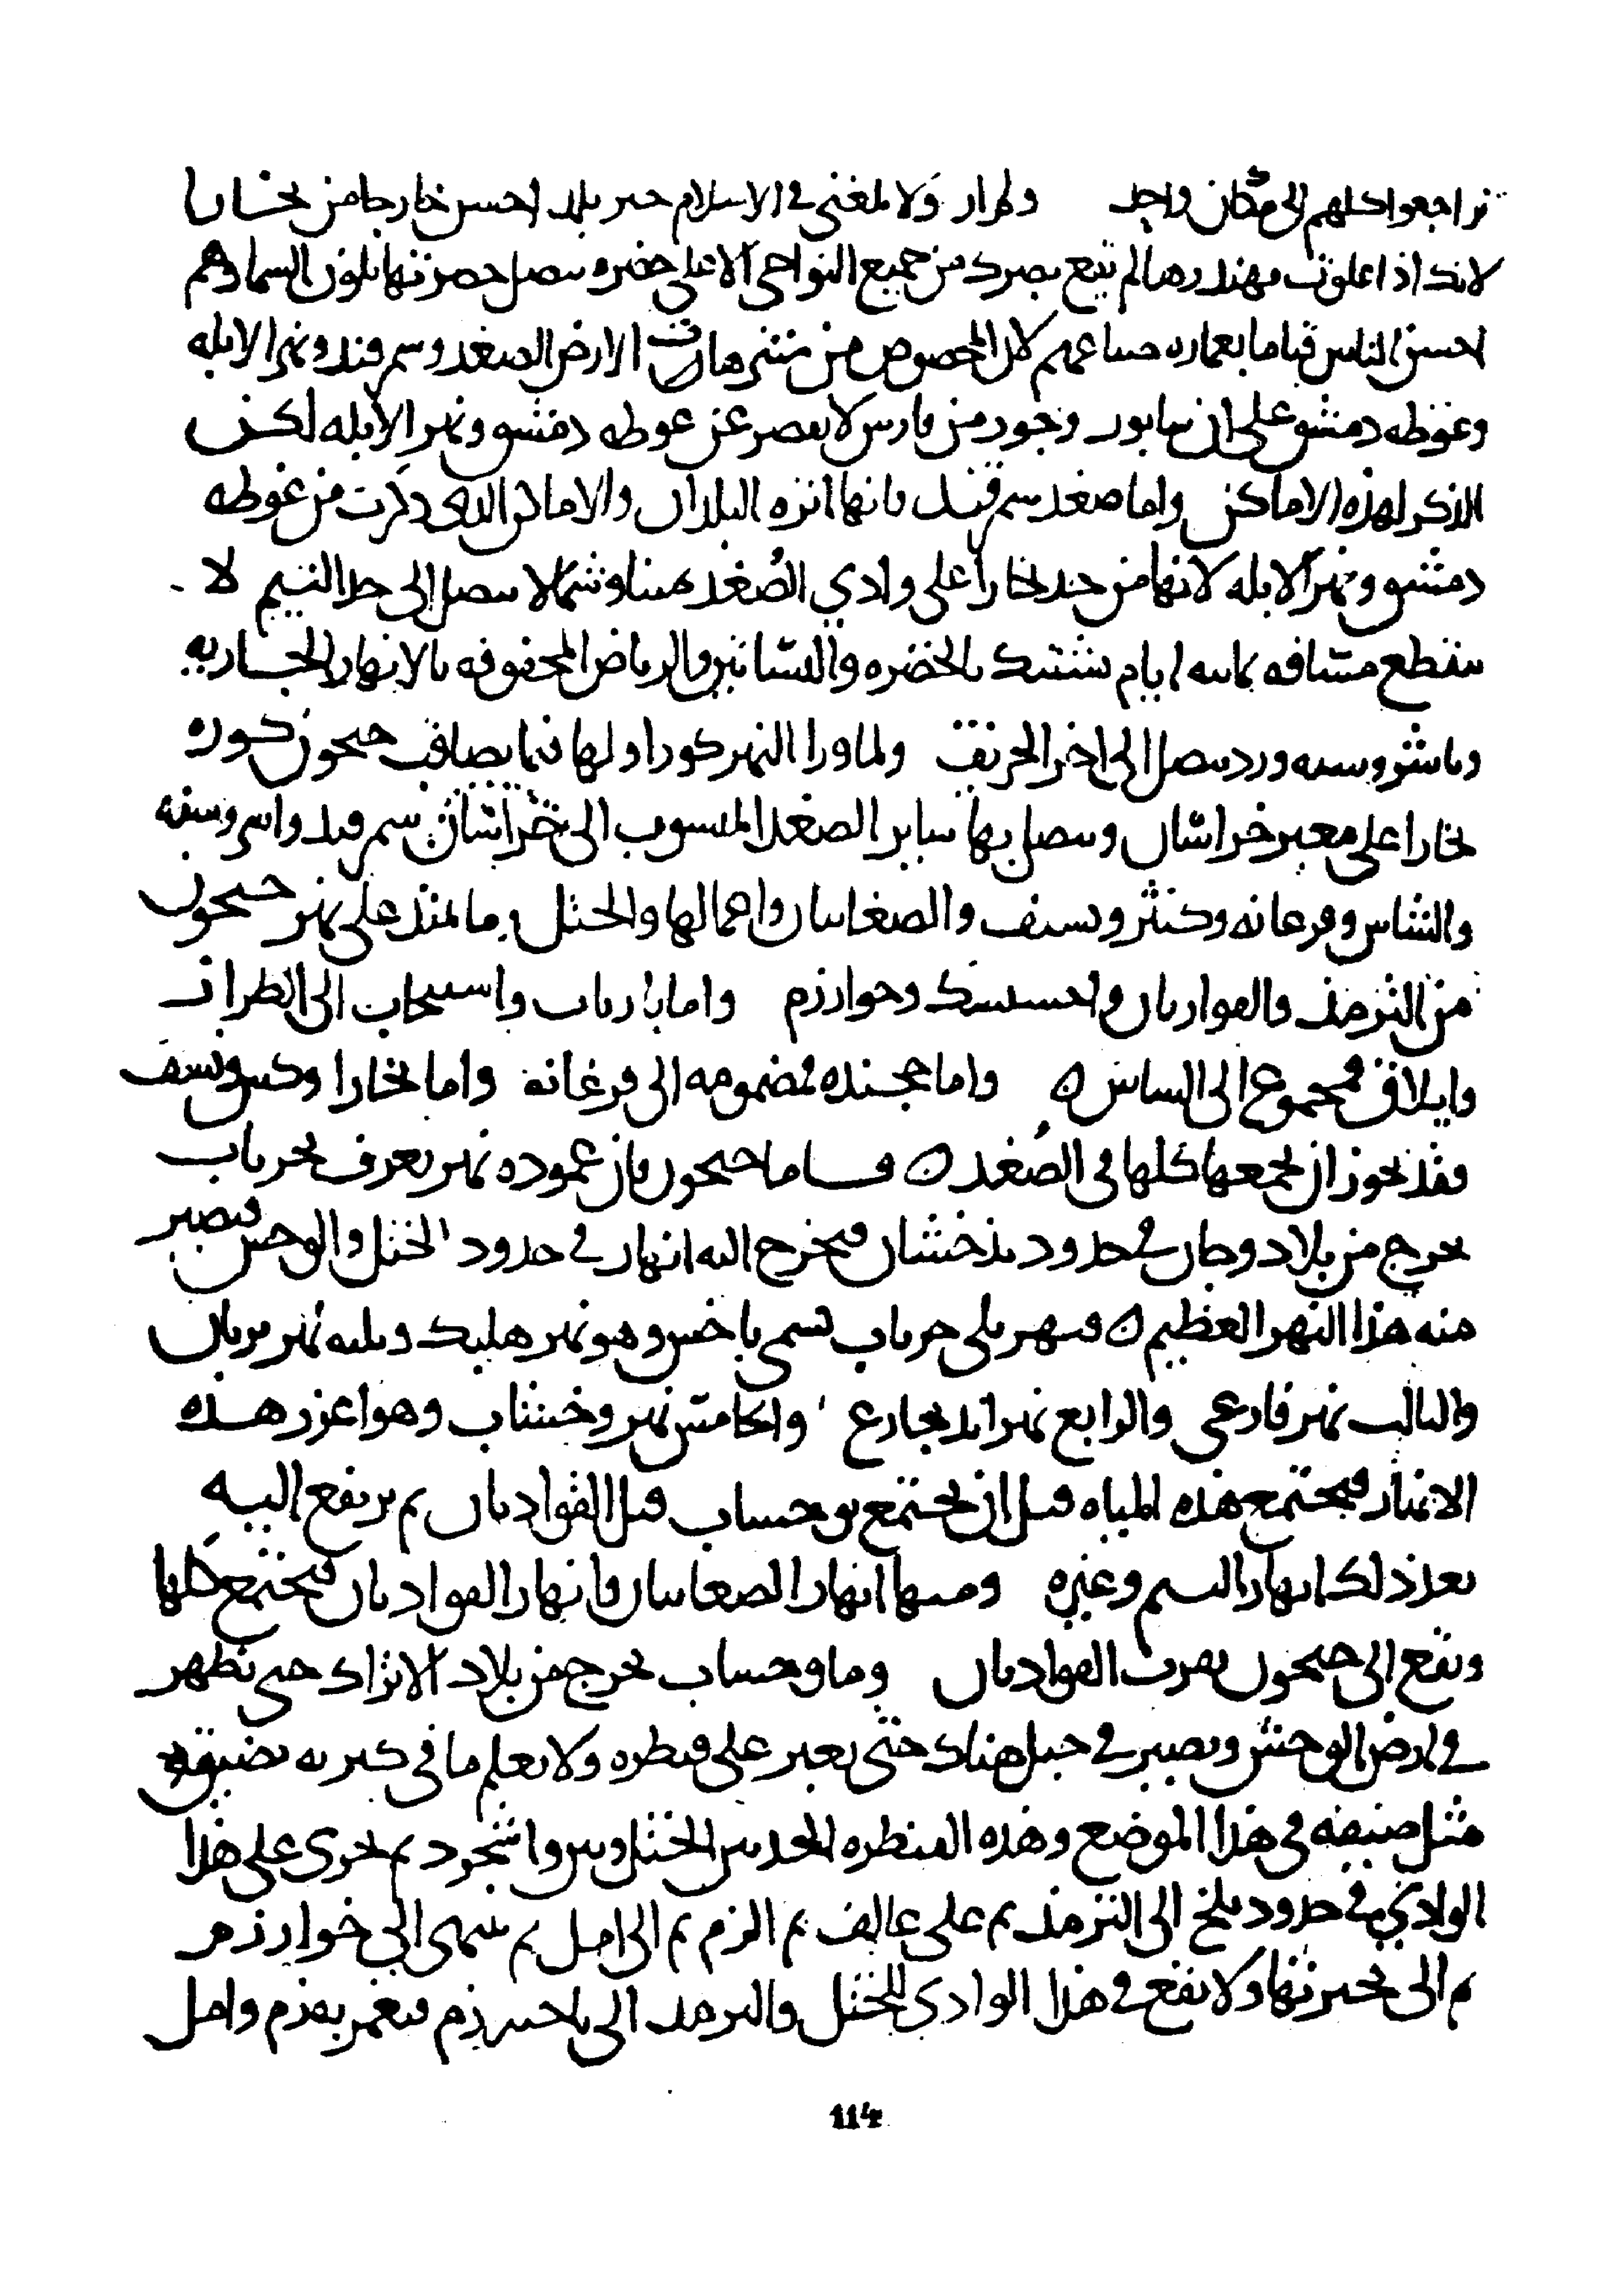 تراجعوا كلهم الى مكان واحد ولم ار ولا بلغنى فى الاسلام خبر بلد احسن خارجا من بخارا
لانك اذا علوت مهندرها لم يقع بصرك من جميع النواحى الا على خضره يتصل خضرتها بلون السما وهم
احسن الناس قياما بعماره ضياعهم كان المخصوص من متنزهات الارض الصغد وسمرقند ونهر الابله
وغوطه دمشق على ان سابور وجور من فارس لا يقصر عن غوطه دمشق ونهر الابله لكن
الذكر لهذه الاماكن واما صغد سمرقند فانها انزه البلدان والاماكن الذى ذكرت من غوطه
دمشق ونهر الابله لانها من حد بخارا على وادي الصُغد يمينا وشمالا يتصل الى حد البتيم لا
ينقطع مسافه ثمانيه ايام تشتبك بالخضره والبساتين والرياض المحفوفه بالانهار الجاريه
يتصل الى اخر ولما ورا النهر كور اولها فيما يصاقب جيحون كوره
بخارا على معبر خراسان ويتصل بها ساير الصغد المنسوب الى سمرقند واسروسنه
والشاس وفرغانه وكش ونسف والصغانيان واعمالها والختل وما يمتد على نهر جيحون
من الترمذ والقواديان واخسيسك وخوارزم واما باراب واسبيجاب الى الطراز
وايلاق فمجموع الى الشاش ن واما خجنده فمضمومه الى فرغانه واما بخارا وكش ونسف
فقد يجوز ان تجمعها كلها فى الصُغد ن فاما جيحون فان عموده نهر يعرف بجرياب
يخرج من بلاد وخان فى حدود بذخشان فيخرج اليه انهار فى حدود الختل والوخش فيصير
منه هذا النهر العظيم ن فنهر يلى جرياب تسمى باخش وهو نهر هلبك ويليه نهر بربان
والثالث نهر فارعى والرابع نهر اندیجارع والخامس نهر وخشاب وهو اغزر هذه
الانهار فيجتمع هذه المياه قبل ان يجتمع مع وخشاب قبل القواديان ثم يرتفع اليه
بعد ذلك انهار البتم وغيره ومنها انهار الصغانيان وانهار القواديان فيجتمع كلها
وتقع الى جيحون بقرب القواديان وما وخشاب يخرج من بلاد الاتراك حتى يظهر
فى ارض الوخش ويصير فى جبل هناك حتى يعبر على قنطره ولا يعلم ما فى كثرته تضيقه
مثل ضيقه فى هذا الموضع وهذه القنطره الحد بين الختل وبين واشجرد ثم يجرى على هذا
الوادي فى حدود بلخ الى الترمذ ثم على كالف ثم الى زم ثم الى امل ثم ينتهى الى خوارزم
ثم الى بحيرتها ولا ينتفع فى هذا الوادى الختل والترمذ الى ناحيه زم فيعمر به زم وامل
114